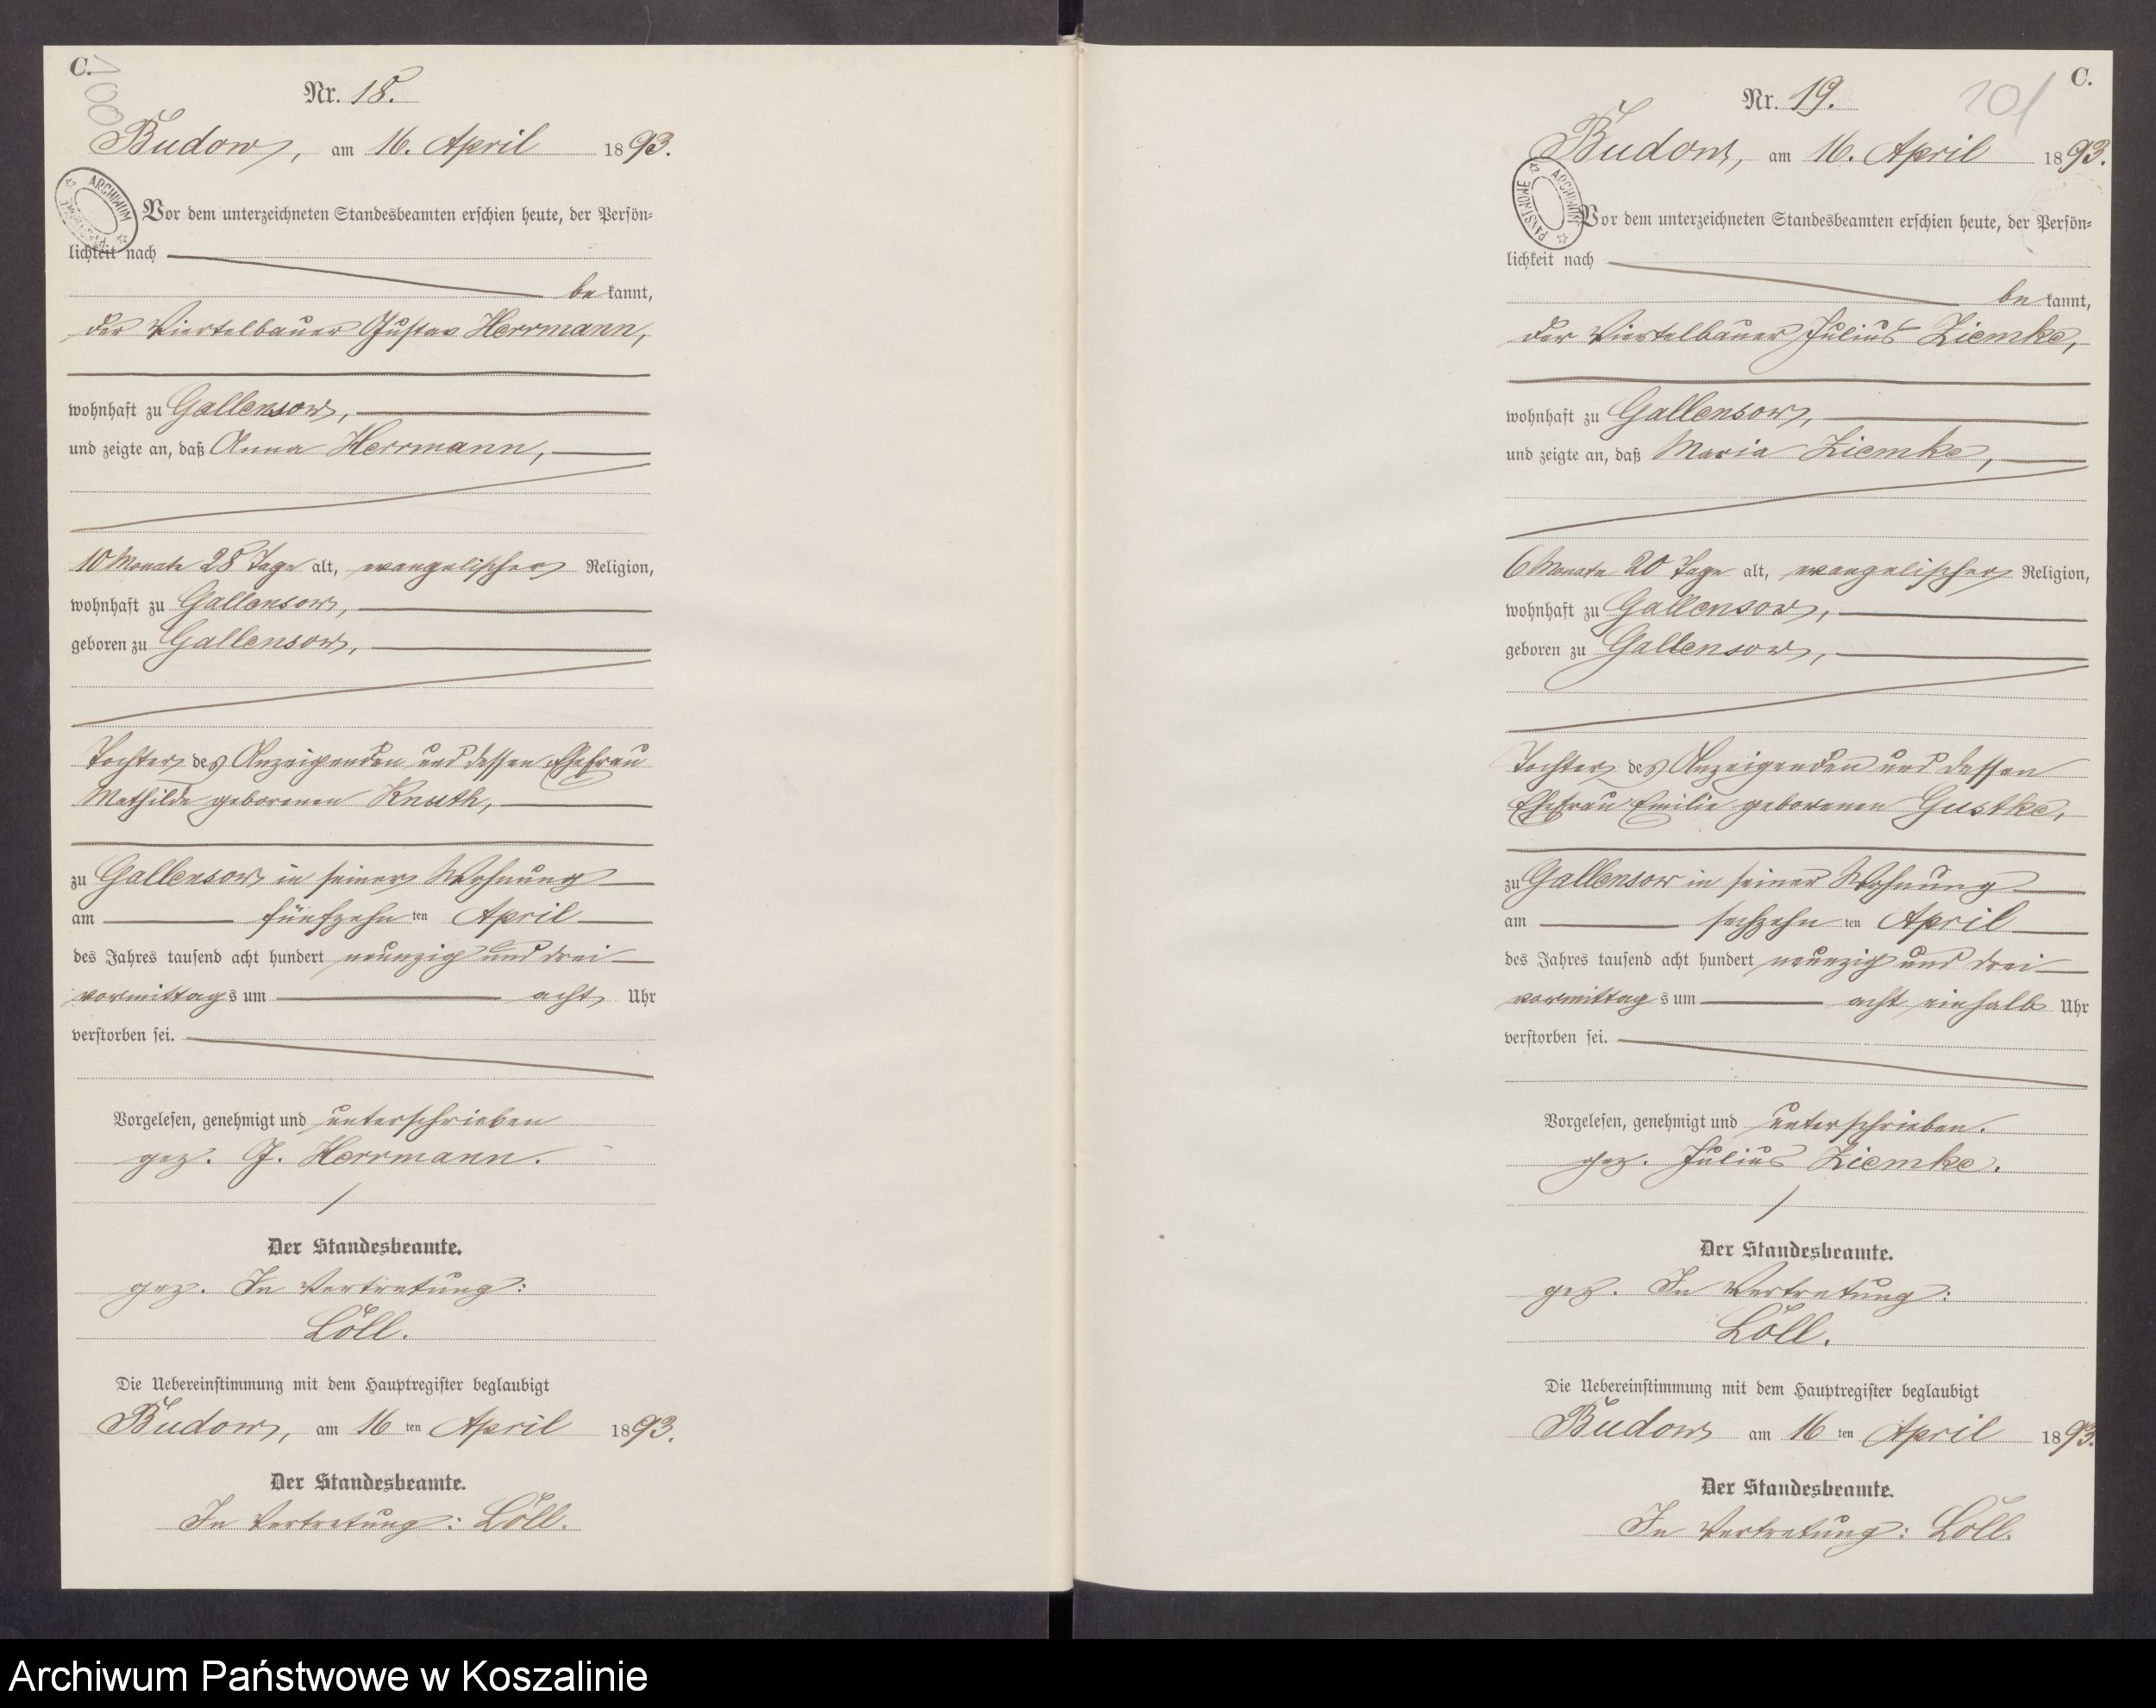 C.
100
Nr. 18.
Budow, am 16. April 1893.
ARCHIWUM PAŃSTWOWE
Vor dem unterzeichneten Standesbeamten erschien heute, der Persön-
lichkeit nach
bekannt,
der Viertelbauer Gustav Herrmann,
wohnhaft zu Gallensow,
und zeigte an, daß Anna Herrmann,
10 Monate 28 Tage alt, evangelischer Religion,
wohnhaft zu Gallensow,
geboren zu Gallensow,
Tochter des Anzeigenden und dessen Ehefrau
Mathilde geborenen Knuth,
zu Gallensow in seiner Wohnung
am fünfzehnten April
des Jahres tausend acht hundert neunzig und drei
vormittags um acht Uhr
verstorben sei.
Vorgelesen, genehmigt und unterschrieben
gez. G. Herrmann.
Der Standesbeamte.
gez. In Vertretung:
Löll.
Die Uebereinstimmung mit dem Hauptregister beglaubigt
Budow, am 16ten April 1893.
Der Standesbeamte.
In Vertretung: Löll.
C.
101
Nr. 19.
Budow, am 16. April 1893.
ARCHIWUM PAŃSTWOWE
Vor dem unterzeichneten Standesbeamten erschien heute, der Persön-
lichkeit nach
bekannt,
der Viertelbauer Julius Ziemke,
wohnhaft zu Gallensow,
und zeigte an, daß Maria Ziemke,
6 Monate 20 Tage alt, evangelischer Religion,
wohnhaft zu Gallensow,
geboren zu Gallensow,
Tochter des Anzeigenden und dessen
Ehefrau Emilie geborenen Gustke,
zu Gallensow in seiner Wohnung
am sechzehnten April
des Jahres tausend acht hundert neunzig und drei
vormittags um acht einhalb Uhr
verstorben sei.
Vorgelesen, genehmigt und unterschrieben.
gez. Julius Ziemke.
Der Standesbeamte.
gez. In Vertretung:
Löll.
Die Uebereinstimmung mit dem Hauptregister beglaubigt
Budow am 16ten April 1893.
Der Standesbeamte.
In Vertretung: Löll.
Archiwum Państwowe w Koszalinie